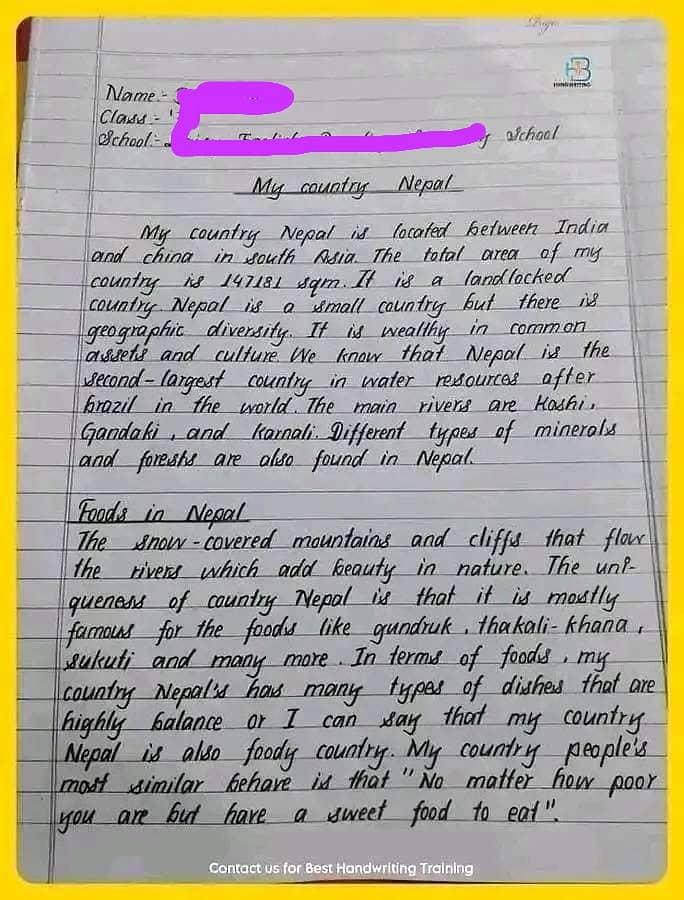 Page
HB
HANDWRITING
Name:-
Class:-
School:- School
My country Nepal
My country Nepal is located between India
and china in south Asia. The total area of my
country is 147181 sqm. It is a landlocked
country. Nepal is a small country but there is
geographic diversity. It is wealthy in common
assets and culture. We know that Nepal is the
second-largest country in water resources after
brazil in the world. The main rivers are Koshi,
Gandaki, and karnali. Different types of minerals
and forests are also found in Nepal.
Foods in Nepal
The snow-covered mountains and cliffs that flow
the rivers which add beauty in nature. The uni-
queness of country Nepal is that it is mostly
famous for the foods like gundruk, thakali-khana,
sukuti and many more. In terms of foods, my
country Nepal's has many types of dishes that are
highly balance or I can say that my country
Nepal is also foody country. My country people's
most similar behave is that "No matter how poor
you are but have a sweet food to eat".
Contact us for Best Handwriting Training